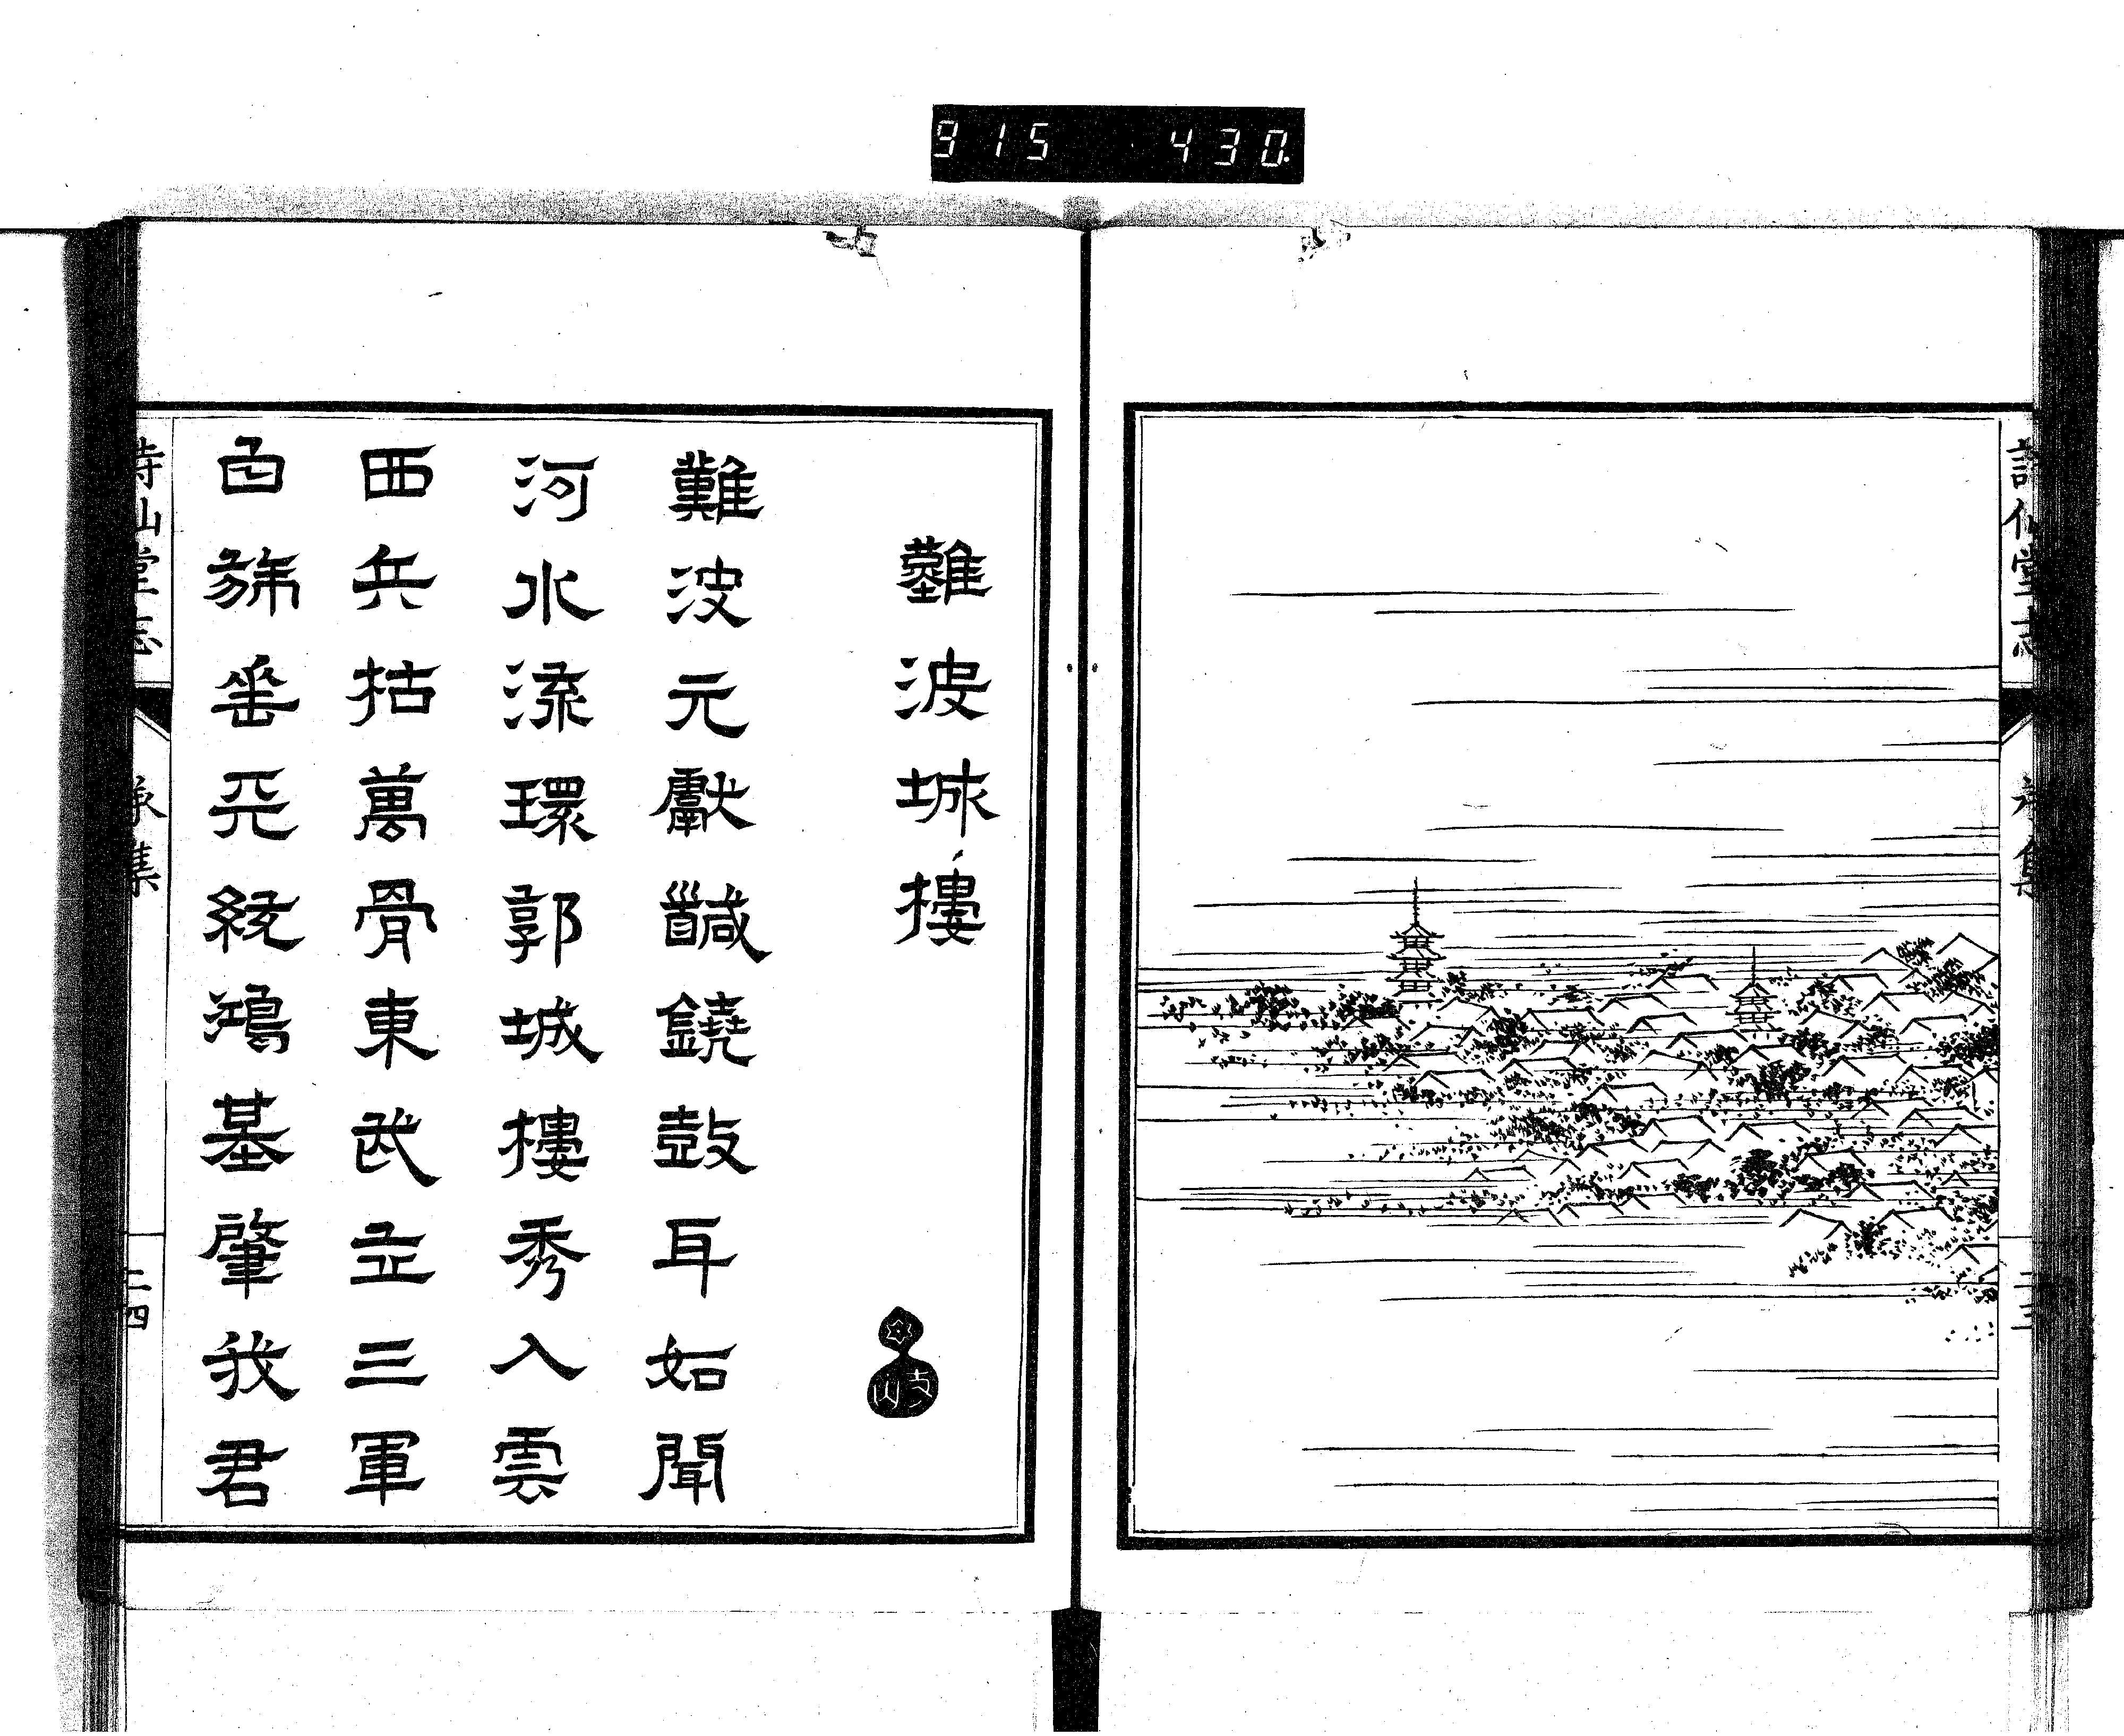 詩仙堂志
承集
二三
難波城樓
難波元獻馘鐃鼓耳如聞
河水流環郭城樓秀入雲
西兵枯萬骨東武立三軍
白旆垂丕統鴻基肇我君
詩仙堂志
承集
二四
915 430